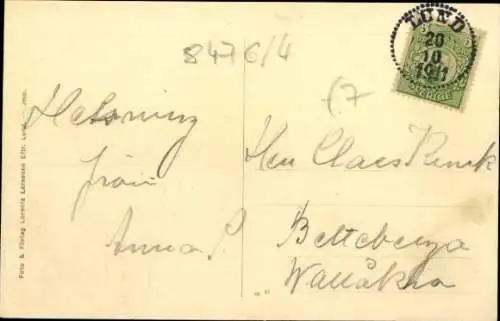 8476/4
LUND
20
10
1911
Helsning
från
Anna P.
Herr Claes Munk
Betteberga
Wallåkra
Foto & Förlag Lorentz Larssons Eftr. Lund.